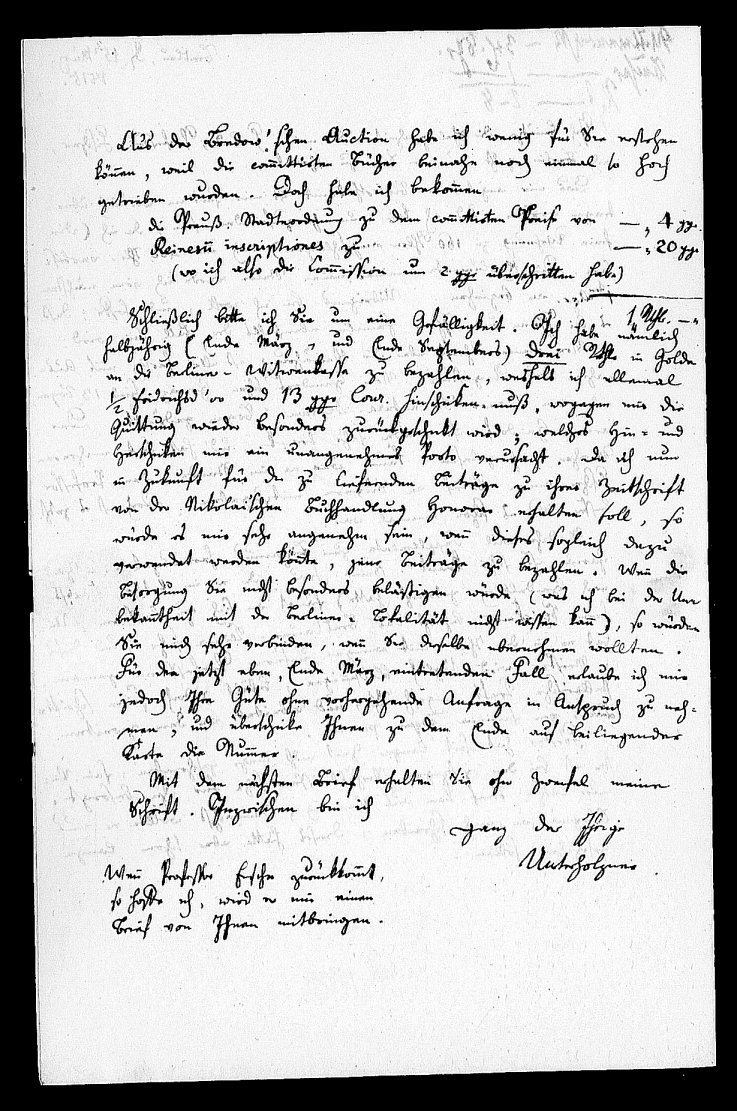 Aus der Bredow'schen Auction habe ich wenig für Sie erstehen
können, weil die committirten Bücher beinahe noch einmal so hoch
getrieben wurden. Doch habe ich bekommen
die Preuß. Stadtordnung zu dem committirten Preise von — „ 4 ggr.
Reinesii inscriptiones zu — „ 20 ggr
(wo ich also die Commission um 2 ggr überschritten habe)
1 Rthl. — „
Schließlich bitte ich Sie um eine Gefälligkeit. Ich habe nämlich
halbjährig (Ende März, und Ende Septembers) drei Rthlr in Golde
an die Berliner-Witwenkasse zu bezahlen, weshalb ich allemal
1/2 Fridrichsd'or und 13 ggr Cour. hinschicken muß, wogegen mir die
Quittung wieder besonders zurückgeschickt wird; welches Hin- und
Herschicken mir ein unangenehmes Porto verursacht. Da ich nun
in Zukunft für die zu liefernden Beiträge zu ihrer Zeitschrift
von der Nikolaischen Buchhandlung Honorar erhalten soll, so
würde es mir sehr angenehm sein, wenn dieses sogleich dazu
verwendet werden könnte, jene Beiträge zu bezahlen. Wenn die
Besorgung Sie nicht besonders belästigen würde (was ich bei der Un-
bekanntheit mit der Berliner-Lokalität nicht wissen kann), so würden
Sie mich sehr verbinden, wenn Sie dieselbe übernehmen wollten.
Für den jetzt eben, Ende März, eintretenden Fall erlaube ich mir
jedoch Ihre Güte ohne vorhergehende Anfrage in Anspruch zu neh-
men, und überschicke Ihnen zu dem Ende auf beiliegender
Karte die Nummer.
Mit dem nächsten Brief erhalten Sie ohne Zweifel meine
Schrift. Inzwischen bin ich
ganz der Ihrige
Unterholzner.
Wenn Professor zurückkommt,
so hoffe ich, wird er mir einen
Brief von Ihnen mitbringen.